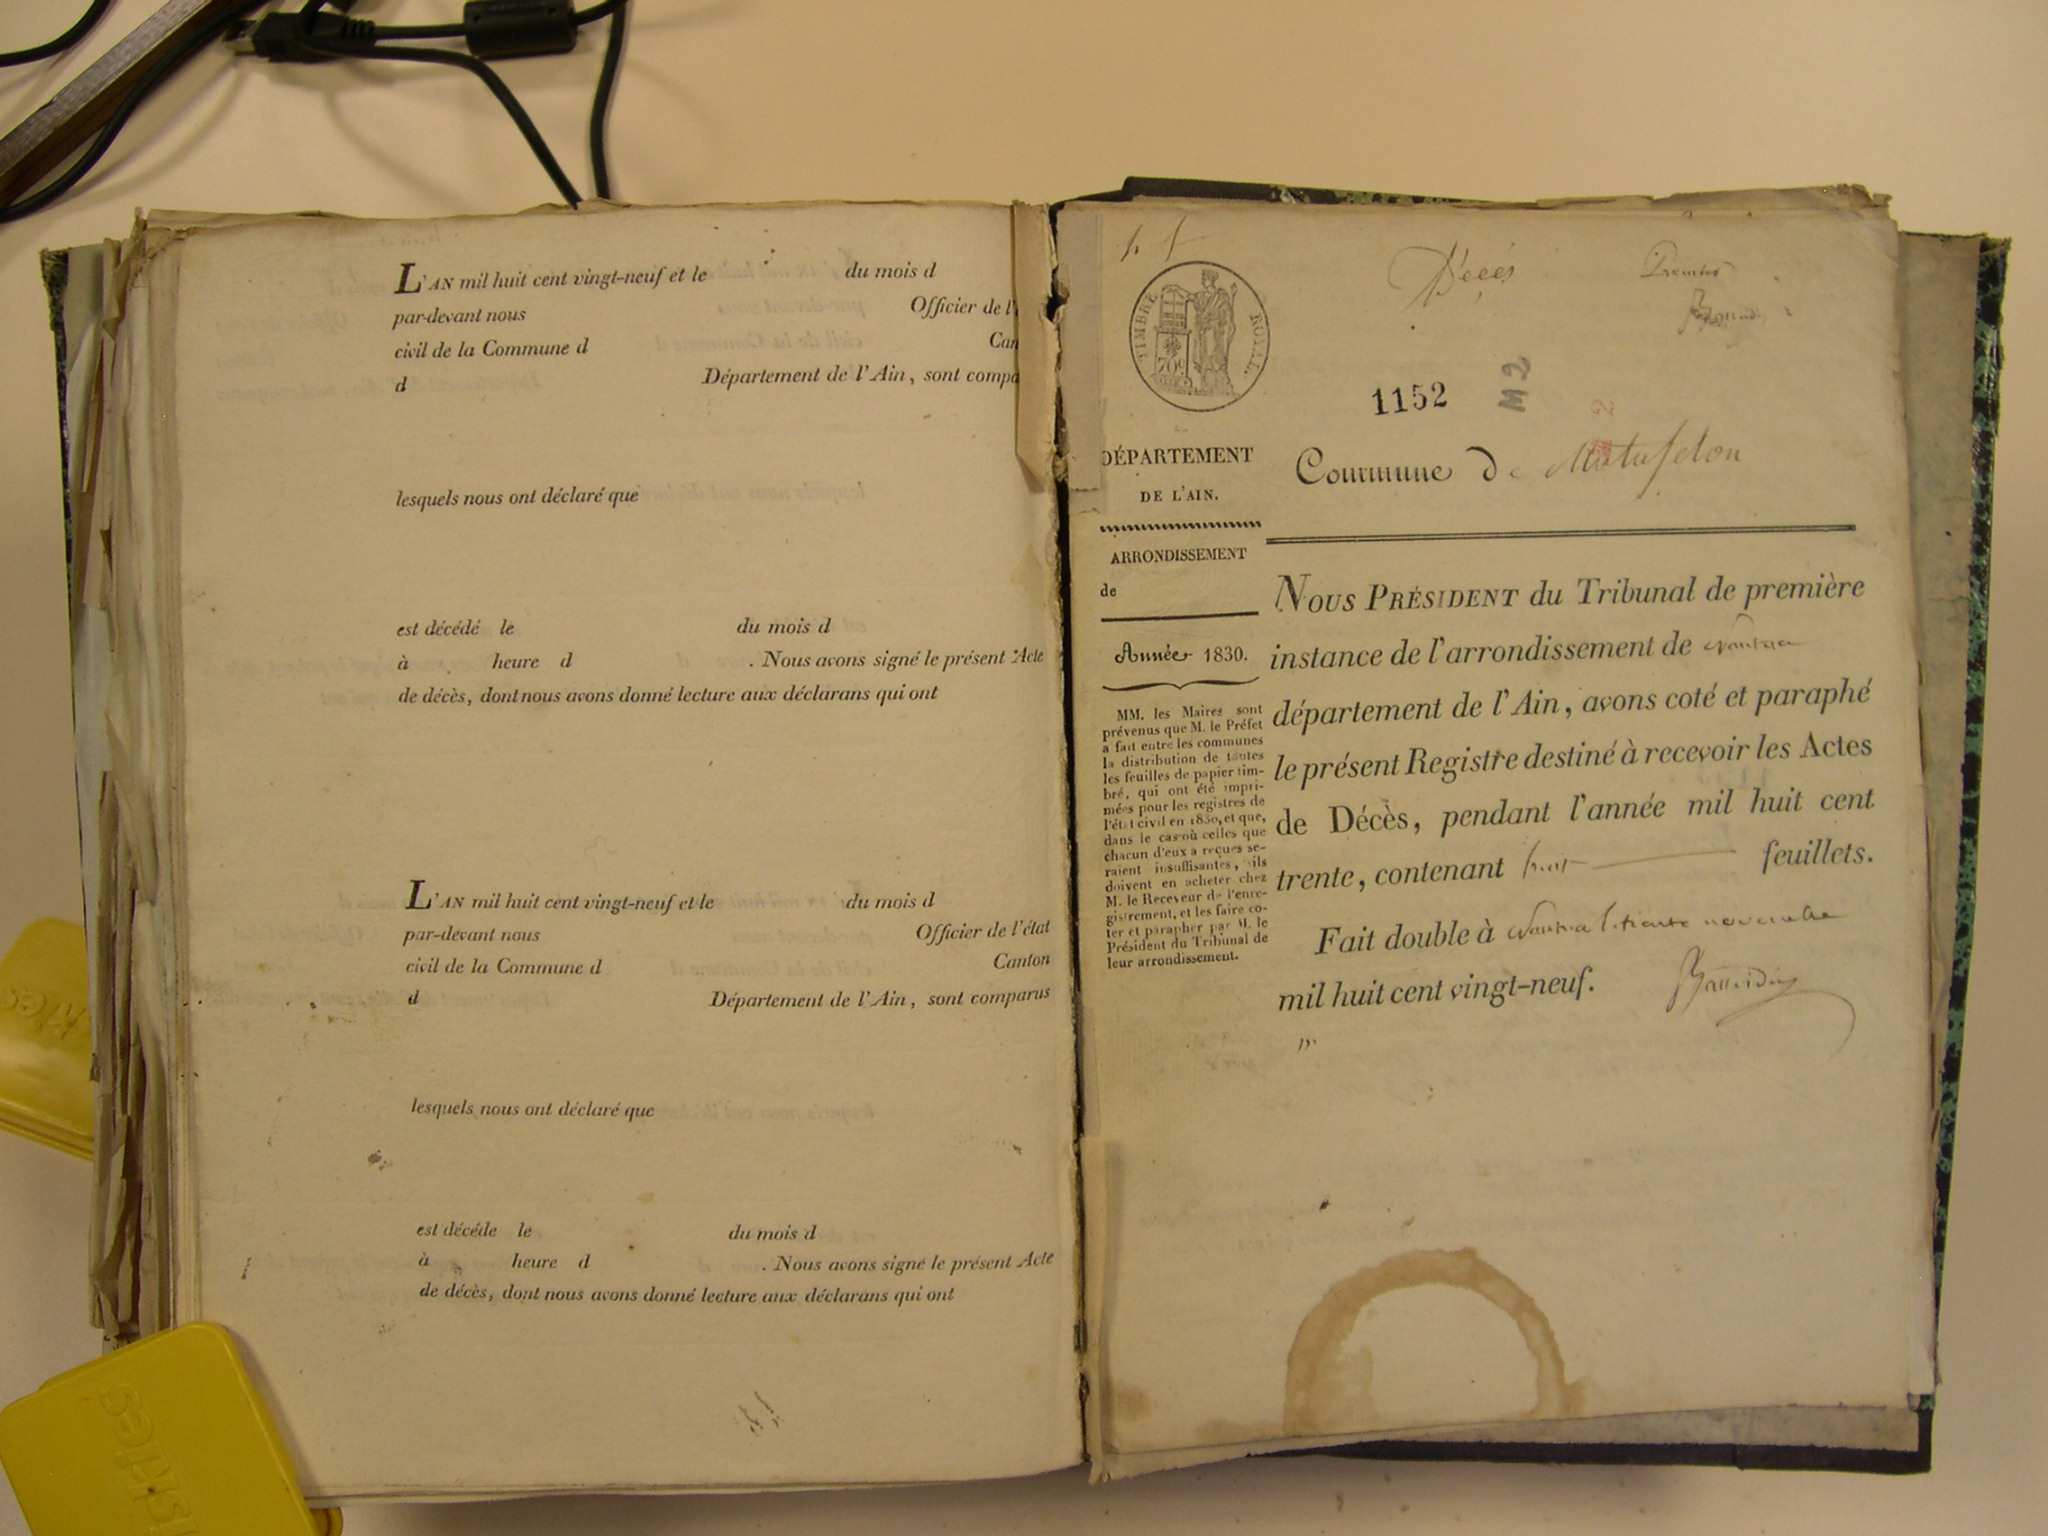 L'AN mil huit cent vingt-neuf et le du mois d
par-devant nous Officier de l'
civil de la Commune d Can
d Département de l'Ain, sont compa
lesquels nous ont déclaré que
est décédé le du mois d
à heure d . Nous avons signé le présent Acte
de décès, dont nous avons donné lecture aux déclarans qui ont
L'AN mil huit cent vingt-neuf et le du mois d
par-devant nous Officier de l'état
civil de la Commune d Canton
d Département de l'Ain, sont comparus
lesquels nous ont déclaré que
est décéde le du mois d
à heure d . Nous avons signé le présent Acte
de décès, dont nous avons donné lecture aux déclarans qui ont
Décés Premier
TIMBRE ROYAL
1152 M2
DÉPARTEMENT
DE L'AIN.
ARRONDISSEMENT
de
Année 1830.
MM. les Maires sont
prévenus que M. le Préfet
a fait entre les communes
la distribution de toutes
les feuilles de papier tim-
bré, qui ont été impri-
mées pour les registres de
l'état civil en 1830, et que,
dans le cas où celles que
chacun d'eux a reçues se-
raient insuffisantes, ils
doivent en acheter chez
M. le Receveur de l'enre-
gistrement, et les faire co-
ter et parapher par M. le
Président du Tribunal de
leur arrondissement.
Commune de Matafelon
NOUS PRÉSIDENT du Tribunal de première
instance de l'arrondissement de Nantua
département de l'Ain, avons coté et paraphé
le présent Registre destiné à recevoir les Actes
de Décès, pendant l'année mil huit cent
trente, contenant huit feuillets.
Fait double à Nantua le trente novembre
mil huit cent vingt-neuf.